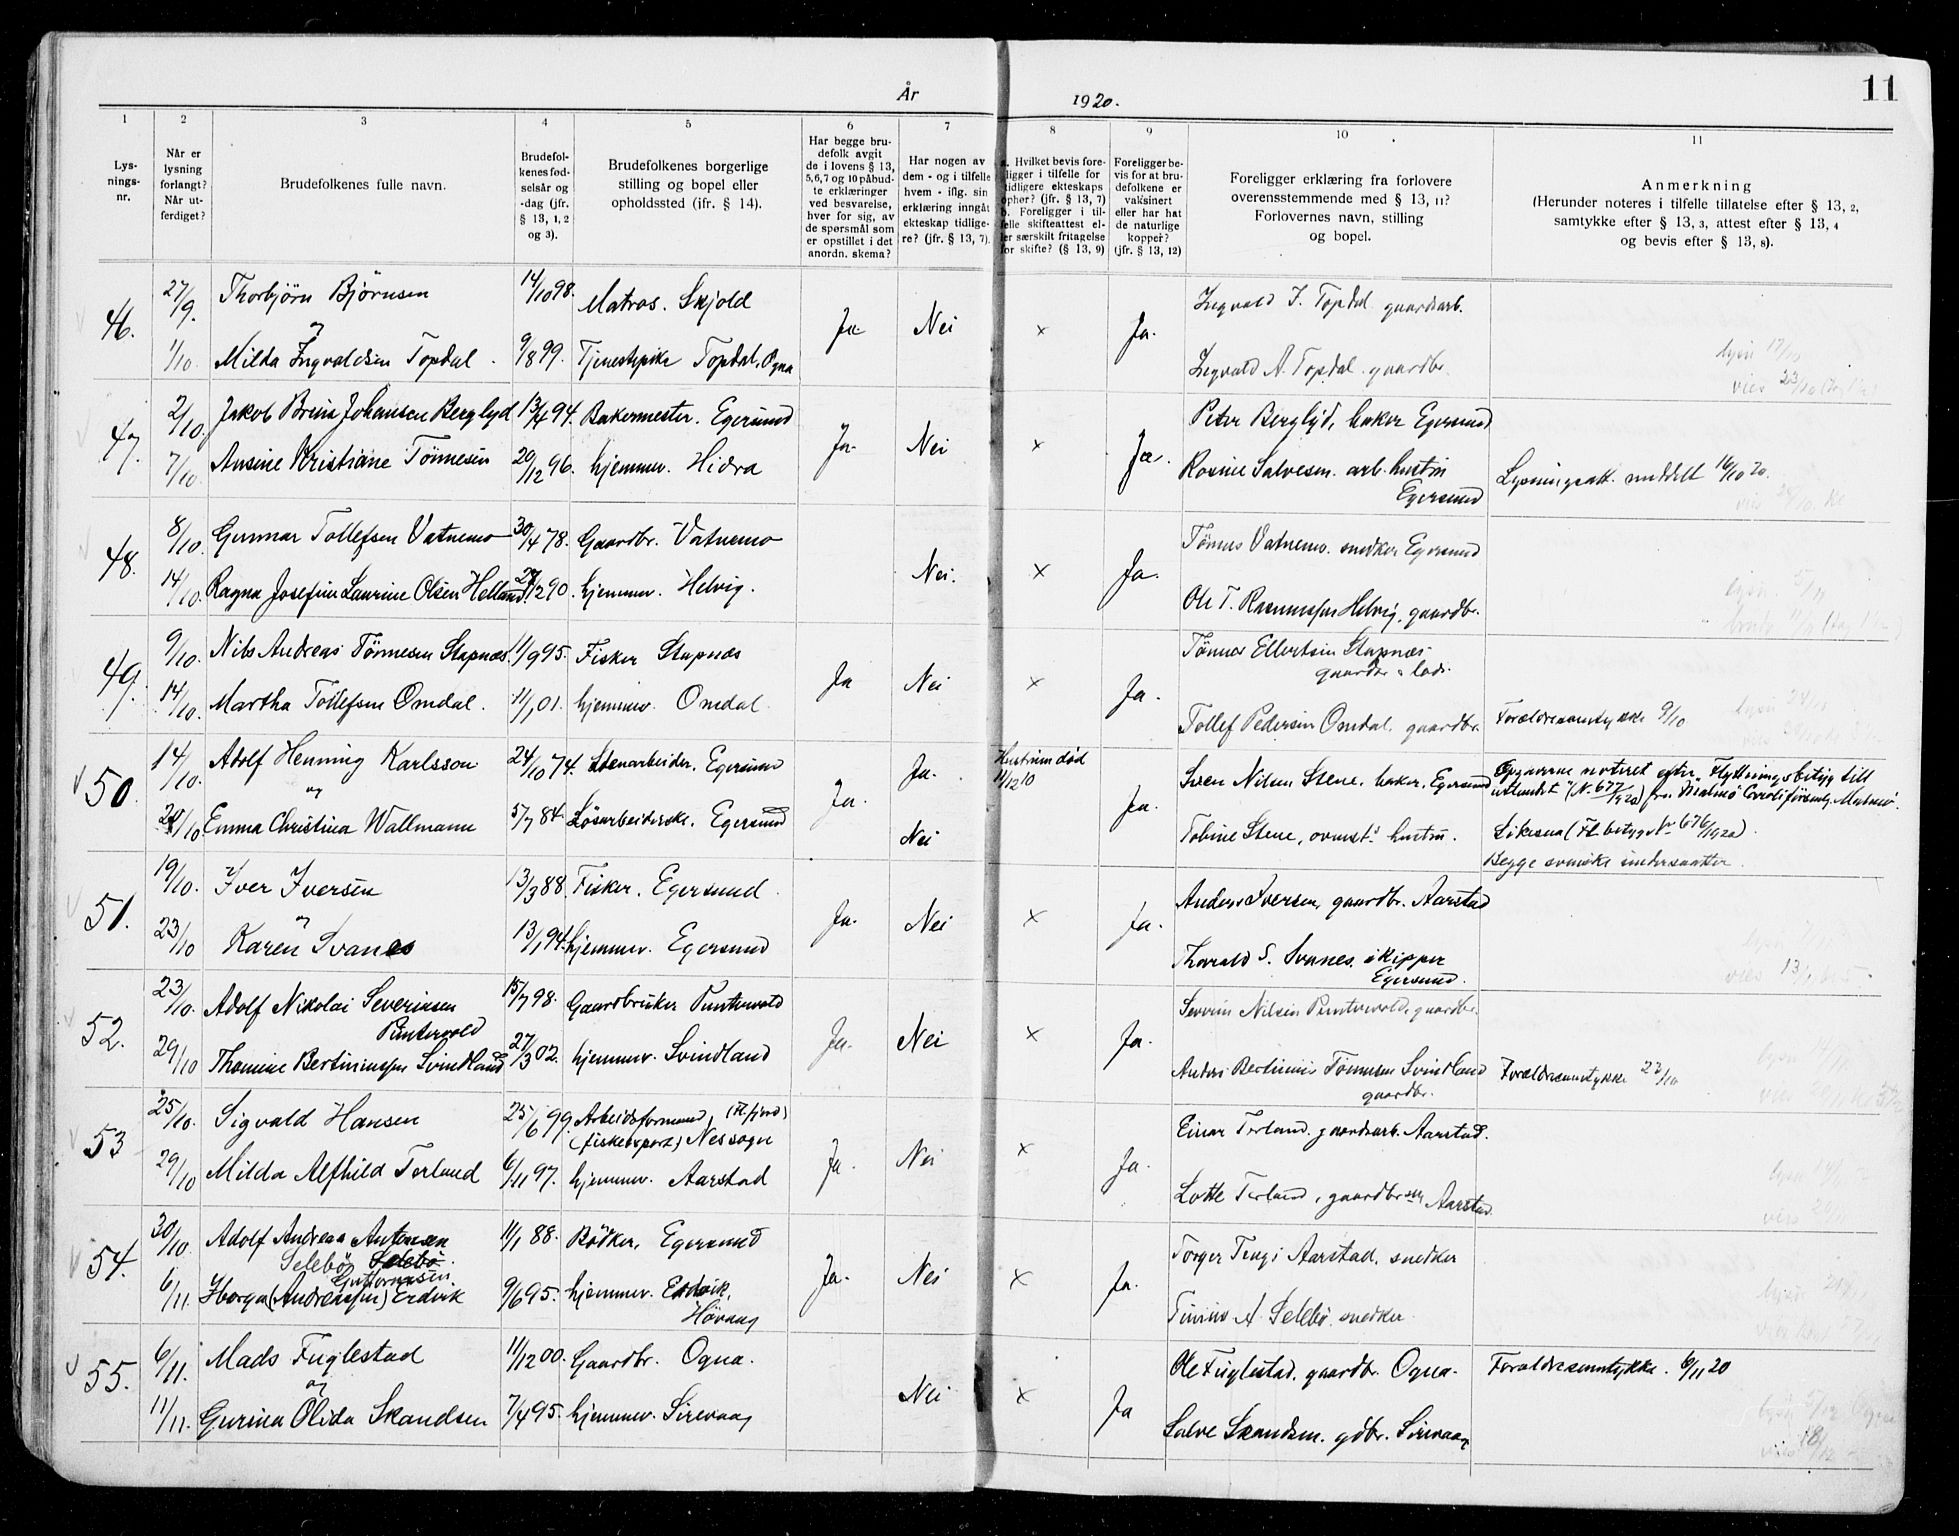 11
År 1920.
1 2 3 4 5 6 7 8 9 10 11
Lys-
nings-
nr.
Når er
lysning
forlangt?
Når ut-
ferdiget?
Brudefolkenes fulle navn.
Brudefol-
kenes fød-
selsår og
-dag (jfr.
§ 13, 1, 2
og 3).
Brudefolkenes borgerlige
stilling og bopel eller
opholdssted (jfr. § 14).
Har begge bru-
defolk avgit
de i lovens § 13,
5,6,7 og 10 påbud-
te erklæringer
ved besvarelse,
hver for sig, av
de spørsmål som
er opstillet i det
anordn. skema?
Har nogen av
dem - og i tilfelle
hvem - iflg. sin
erklæring inngåt
ekteskap tidlige-
re? (jfr. § 13, 7).
a. Hvilket bevis fore-
ligger i tilfelle for
tidligere ekteskaps
ophør? (jfr. § 13, 7)
b. Foreligger i til-
felle skifteattest el-
ler særskilt fritagelse
for skifte? (§ 13, 9)
Foreligger be-
vis for at bru-
defolkene er
vaksinert
eller har hat
de naturlige
kopper?
(jfr. § 13, 12)
Foreligger erklæring fra forlovere
overensstemmende med § 13, 11?
Forlovernes navn, stilling
og bopel.
Anmerkning
(Herunder noteres i tilfelle tillatelse efter § 13, 2,
samtykke efter § 13, 3, attest efter § 13, 4
og bevis efter § 13, 8).
46. 27/9. Thorbjörn Björnsen 14/10 98. Matros. Skjold Ja Nei × Ja. Ingvald I. Topdal gaardsarb.
og
1/10. Milda Ingvaldsen Topdal. 9/8 99. Tjenestepike Topdal, Ogna Ingvald A. Topdal gaardbr.
lysn 17/10
vies 23/10
47. 2/10. Jakob Breiu Johansen Berglyd 13/4 94. Bakermester. Egersund Ja. Nei × Ja. Peter Berglyd, baker Egersund
7/10 Ansine Kristiane Tönnesen 20/12 96. hjemmev. Hidra Rosine Salvesen. arb. hustru
Egersund
Lysningsatt. meddelt 16/10 20.
48. 8/10. Gunnar Tollefsen Vatnemo 30/4 78. Gaardbr. Vatnemo Nei. × Ja. Tönnes Vatnemo. snedker Egersund
14/10. Ragna Josefine Laurine Olsen Helland 2 90. hjemmev. Helvig. Ole T. Rasmussen Helvig, gaardbr.
49. 9/10. Nils Andreas Tönnesen Stapnæs. 11/9 95. Fisker Stapnæs Ja Nei × Ja. Tönnes Ellertsen Stapnæs
gaardbr. & lods.
14/10. Martha Tollefsen Omdal. 11/1 01. hjemmev. Omdal. Tollef Pedersen Omdal, gaardbr. Forældresamtykke 9/10
50. 14/10. Adolf Henning Karlsson 24/10 74. Stenarbeider. Egersund Ja. Ja. Hustruen död
11/12 10 Ja. Sven Nilsen Stene, baker, Egersund
og
24/10 Emma Christina Wallmann 5/7 84. Lösarbeiderske. Egersund Nei Tobine Stene, ovennt.s hustru.
Opgaverne noteret efter „Flyttningsbetyg till
utlandet" (N. 677/1920) fra Malmö Caroli församlg. Malmö.
Likesaa (Fl. betyg Nr 676/1920).
Begge svenske undersaatter.
51. 19/10. Iver Iversen 13/3 88. Fisker. Egersund. Ja. Nei × Ja. Anders Iversen, gaardbr. Aarstad
og
23/10 Karen Svanes 13/1 94. hjemmev. Egersund Thorvald S. Svanes. skipper
Egersund.
vies 13/
52. 23/10. Adolf Nikolai Severinsen
Puntervold 15/7 98. Gaardbruker Puntervold Ja. Nei × Ja. Severin Nilsen Puntervold, gaardbr.
29/10 Thomine Bertininsen Svindland 27/3 02. hjemmev. Svindland Anders Bertinius Tönnesen Svindland
gaardbr.
Forældresamtykke 23/10
53 25/10. Sigvald Hansen 25/6 99. Arbeidsformand, (Fl.fjord)
(fiskeexport) Nes sogn Ja. Nei × Ja. Einar Terland. gaardsarb. Aarstad.
29/10 Milda Alfhild Terland 6/11 97. hjemmev. Aarstad Lotte Terland, gaardbr.ske Aarstad.
54. 30/10. Adolf Andreas Antonsen
Selebö Selebö. 11/1 88. Bödker, Egersund Ja. Nei × Ja. Torger Tengs Aarstad, snedker
Guttormsen
6/11. Hborga (Andreassen) Erdvik 9/6 95. hjemmev. Erdvik,
Hövaag A. Selebö, snedker.
55. 6/11. Mads Fuglestad 11/12 00. Gaardbr. Ogna. Nei × Ja Ole Fuglestad, gaardbr. Ogna. Forældresamtykke. 6/11 20
og
11/11. Gurina Olida Skandsen 7/4 95. hjemmev. Sirevaag Salve Skandsen. gdbr. Sirevaag
lysn 5/12 Ogna
vies 18/12